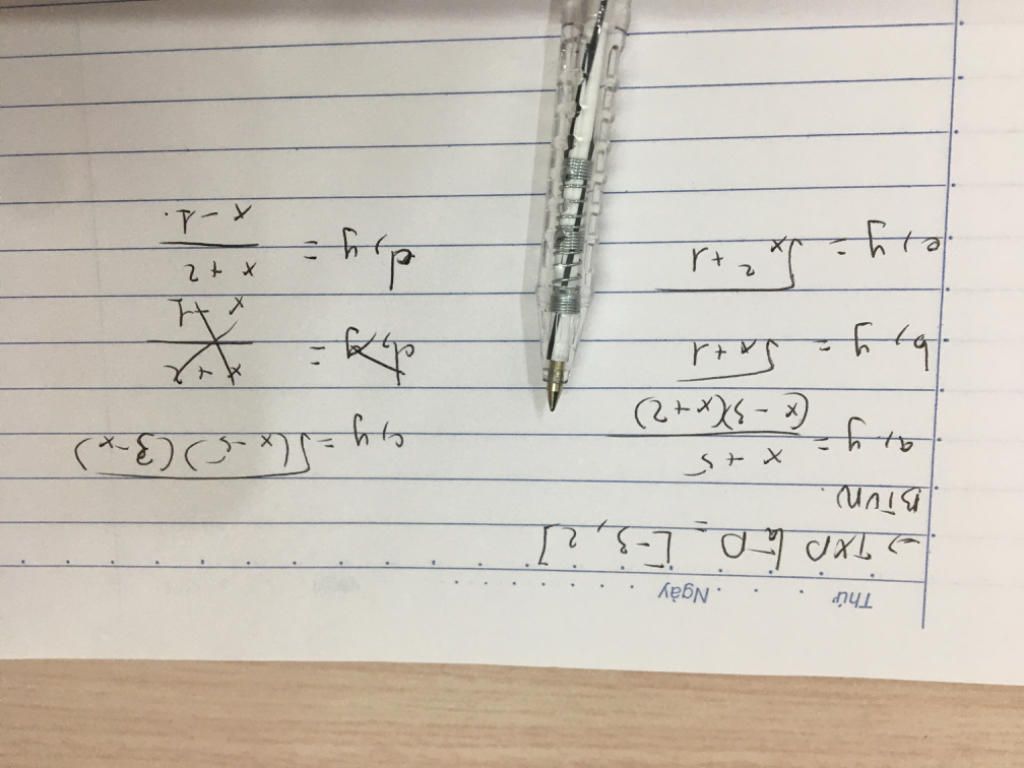 Thứ Ngày
→ TXĐ là D = [-3, 2]
BTVN.
a, y = (x + 5)/((x - 3)(x + 2))
b, y = √(x + 1)
e, y = √(x² + 1)
c, y = √((x - 5)(3 - x))
d, y = (x + 2)/(x - 1)
d, y = (x + 2)/(x - 1).